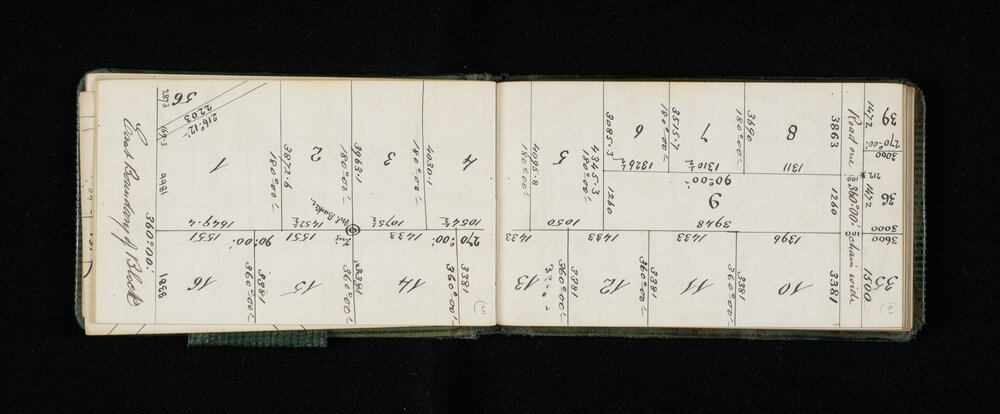 East Boundary of Block
360°:00'
3381
1866
1693
2873
56
2203
216°:12'
1
1649.4
1551
16
3872.6
180°:00'
2
1452½
1551
90°:00'
3381
360°:00'
15
3963.1
180°:00'
3
1075½
1433
3381
360°:00'
14
4030.1
180°:00'
4
1054½
270°:00'
3381
360°:00'
4095.8
180°:00'
5
1050
1433
13
3381
360°:00'
4345.3
180°:00'
3085.3
1260
6
1326½
1433
12
3381
360°:00'
3515.7
180°:00'
7
1310½
90°:00'
9
3948
1433
11
3381
360°:00'
3690
180°:00'
8
1311
1396
10
3381
360°:00'
3863
1260
3381
Road one
360°:00'
chain wide
39
1472
270°:00'
3000
36
1472
3000
3600
35
1500